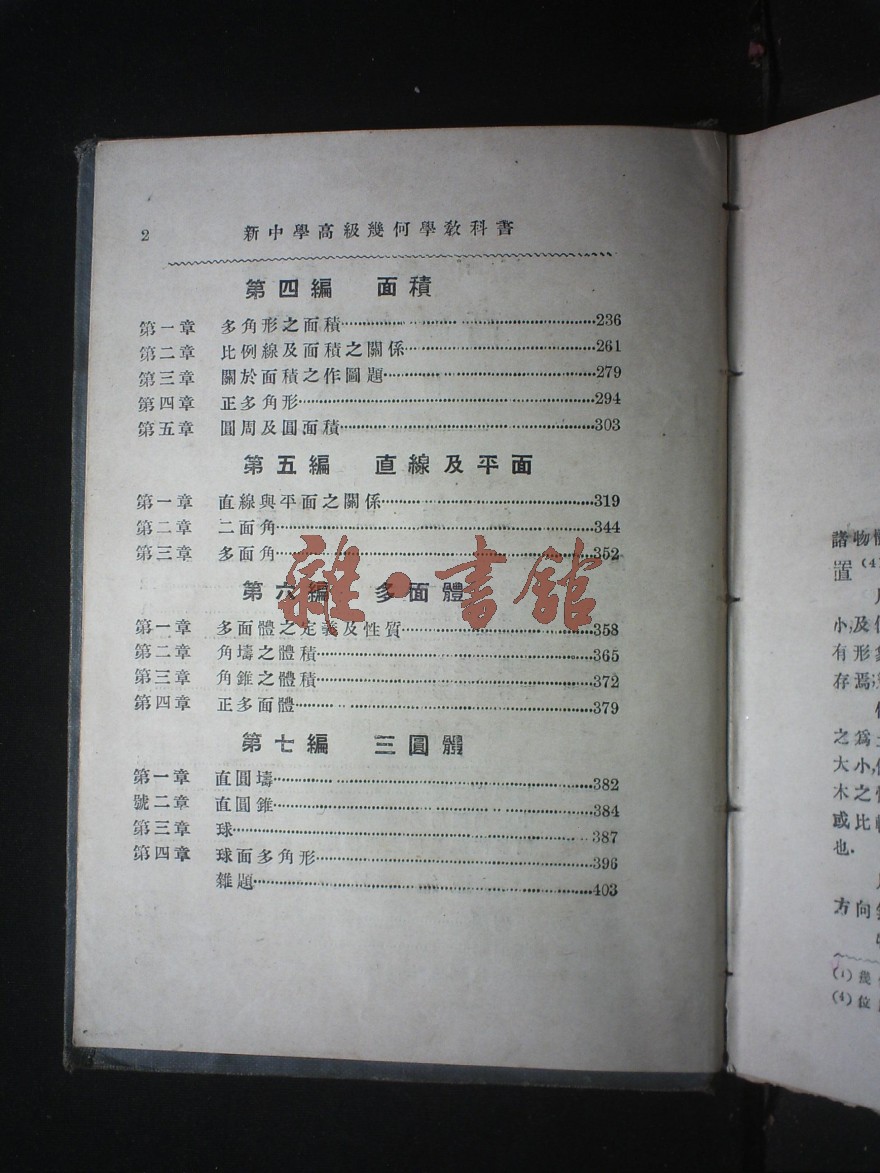 2 新中學高級幾何學教科書
第四編 面積
第一章 多角形之面積……236
第二章 比例線及面積之關係……261
第三章 關於面積之作圖題……279
第四章 正多角形……294
第五章 圓周及圓面積……303
第五編 直線及平面
第一章 直線與平面之關係……319
第二章 二面角……344
第三章 多面角……352
雜·書館
第六編 多面體
第一章 多面體之定義及性質……358
第二章 角壔之體積……365
第三章 角錐之體積……372
第四章 正多面體……379
第七編 三圓體
第一章 直圓壔……382
號二章 直圓錐……384
第三章 球……387
第四章 球面多角形……396
雜題……403
諸物
置(4
小,及
有形
存焉
之爲
大小,
木之
或比
也.
方向
(1) 幾
(4) 位